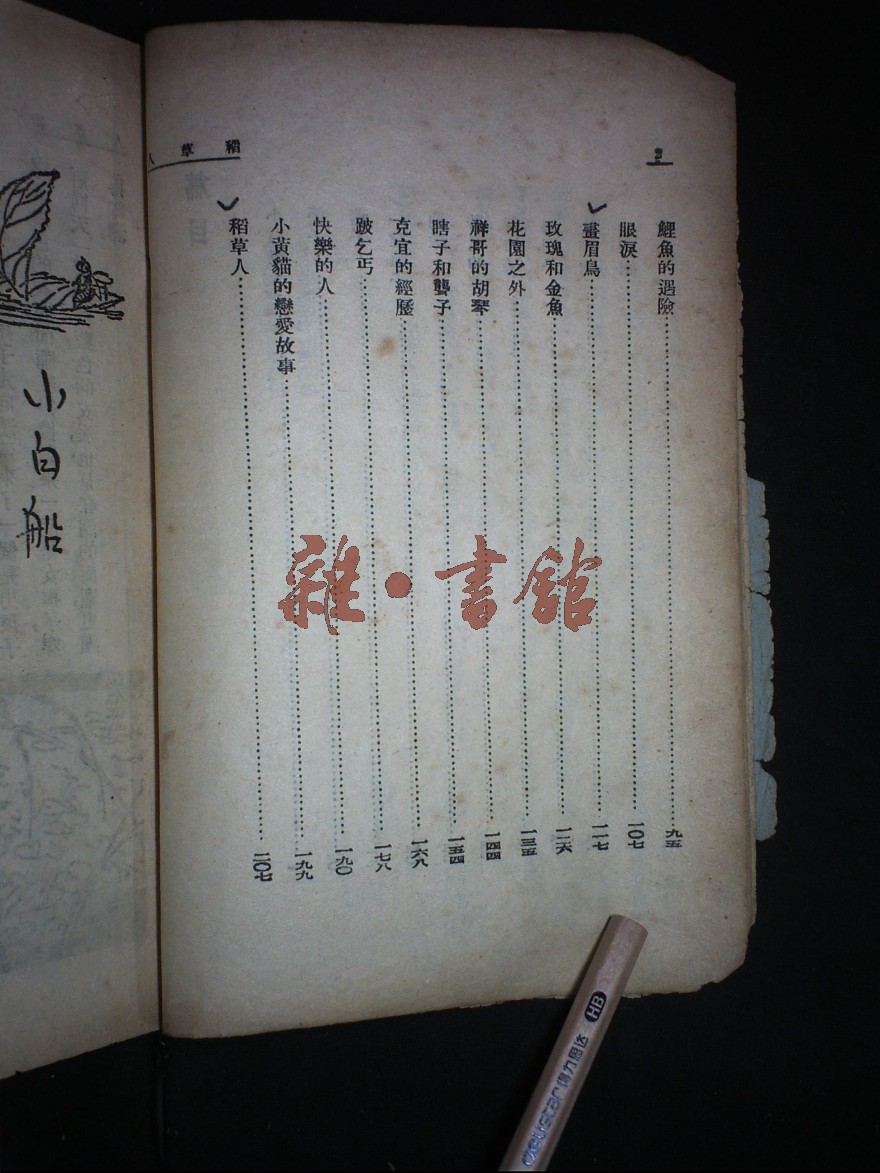 稻草人
2
鯉魚的遇險……九五
眼淚……一〇七
畫眉鳥……一一七
玫瑰和金魚……一二六
花園之外……一三五
祥哥的胡琴……一四四
瞎子和聾子……一五四
克宜的經歷……一六八
跛乞丐……一七八
快樂的人……一九〇
小黃貓的戀愛故事……一九九
稻草人……二〇七
小白船
雜·書館
HB
得力思达